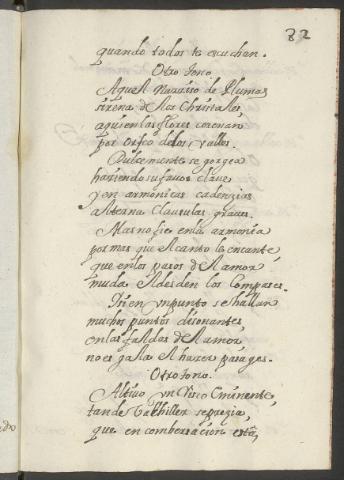 82
quando todos te escuchan.
Otro tono
Aquel Narciso de Plumas
sirena de los christales
a quien las flores coronaron
por Orfeo de los valles.
Dulcemente se gorgea
haziendo su favor clave
y en armonicas cadenzias
alterna clausulas graves.
Mas no fie en la armonia
por mas que el canto le encante,
que en los pasos del amor
muda el desden los compases.
Si en un punto se hallan
muchos puntos disonantes,
en las faldas del amor
no es gala el hazer pasages.
Otro tono.
Altivo un Risco Eminente,
tan de Bachiller se prezia,
que en combersacion està,